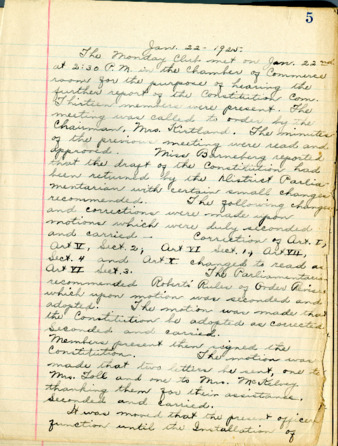 5
Jan. 22 - 1925.
The Monday Club met on Jan. 22nd
at 2:30 P.M. in the Chamber of Commerce
room for the purpose of hearing the
further report of the Constitution Com.
Thirteen members were present. The
meeting was called to order by the
Chairman, Mrs. Kirtland. The minutes
of the previous meeting were read and
approved. Miss Barneberg reported
that the draft of the Constitution had
been returned by the District Parlia
mentarian with certain small changes
recommended. The following changes
and corrections were made upon
motions which were duly seconded
and carried. — Correction of Art. I,
Art V, Sect. 2, Art VI Sect. 1, Art VII,
Sect. 4 and Art X changed to read as
Art VI Sect. 3. The Parliamentarian
recommended Roberts' Rules of Order Revised
which upon motion was seconded and
adopted. The motion was made that
the Constitution be adopted as corrected,
seconded and carried.
Members present then signed the
Constitution. The motion was
made that two letters be sent, one to
Mrs. Toll and one to Mrs. McKelvey
thanking them for their assistance.
Seconded and carried.
It was moved that the present officers
function until the Installation of